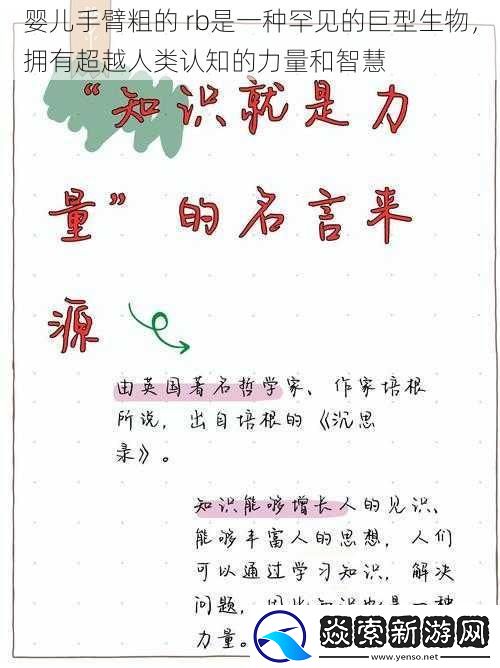 婴儿手臂粗的 rb是一种罕见的巨型生物，
拥有超越人类认知的力量和智慧
“知识就是力
量”的名言来
源
由英国著名哲学家、作家培根
所说，出自培根的《沉思
录》。
知识能够增长人的见识、
能够丰富人的思想，人们
可以通过学习知识，解决
问题，因此知识也是一种
力量。
焱索新游网
www.yenso.net